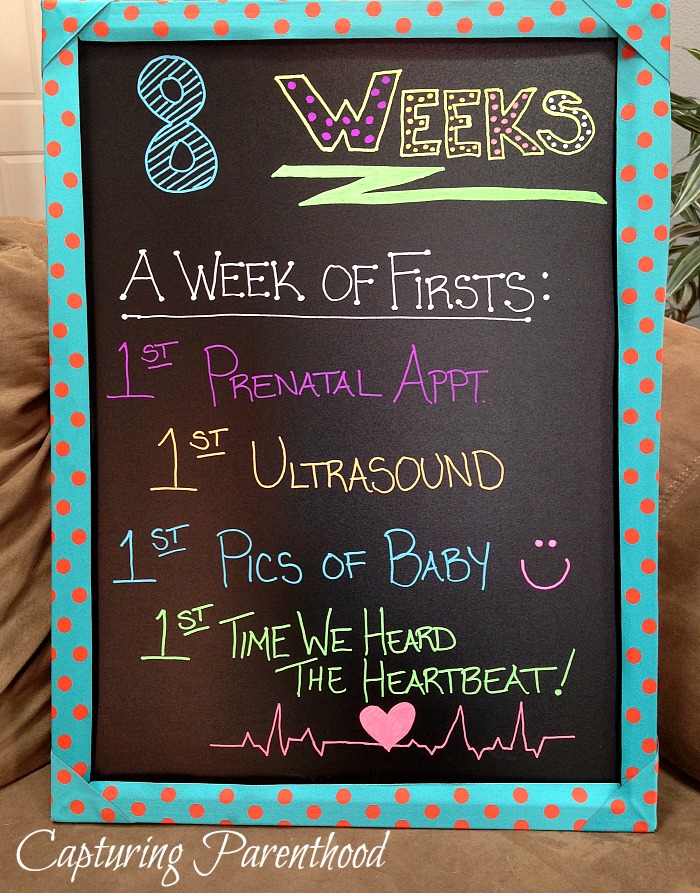 8 WEEKS
A WEEK OF FIRSTS:
1ST PRENATAL APPT.
1ST ULTRASOUND
1ST PICS OF BABY
1ST TIME WE HEARD
THE HEARTBEAT!
Capturing Parenthood